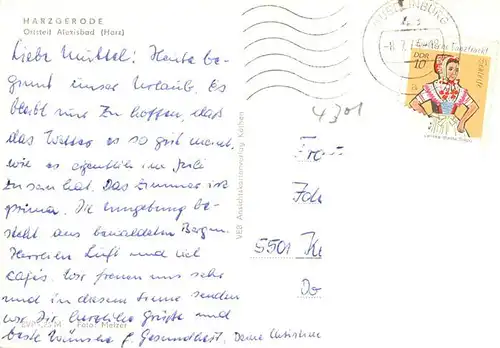 HARZGERODE
Ortsteil Alexisbad (Harz)
Liebe Mutti! Heute be-
ginnt unser Urlaub. Es
bleibt nur zu hoffen, daß
das Wetter es so gut macht,
wie es eigentlich im Juli
zu sein hat. Das Zimmer ist
prima. Die Umgebung be-
steht aus bewaldeten Bergen.
Herrliche Luft und viel
Cafés. Wir freuen uns sehr
und in diesem Sinne senden
wir Dir herzliche Grüße und
beste Wünsche f. Gesundheit, Deine
Foto: Melzer
VEB Ansichtskartenverlag
4301
Frau
5501
DDR
10